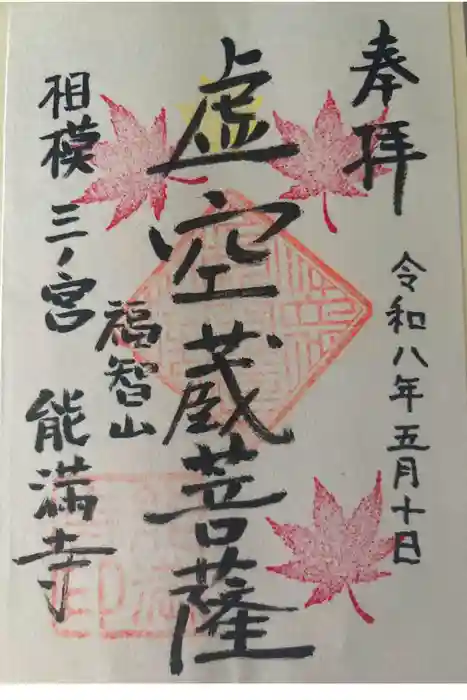 奉拝
令和八年五月十日
虚空蔵菩薩
福智山
相模三ノ宮 能満寺